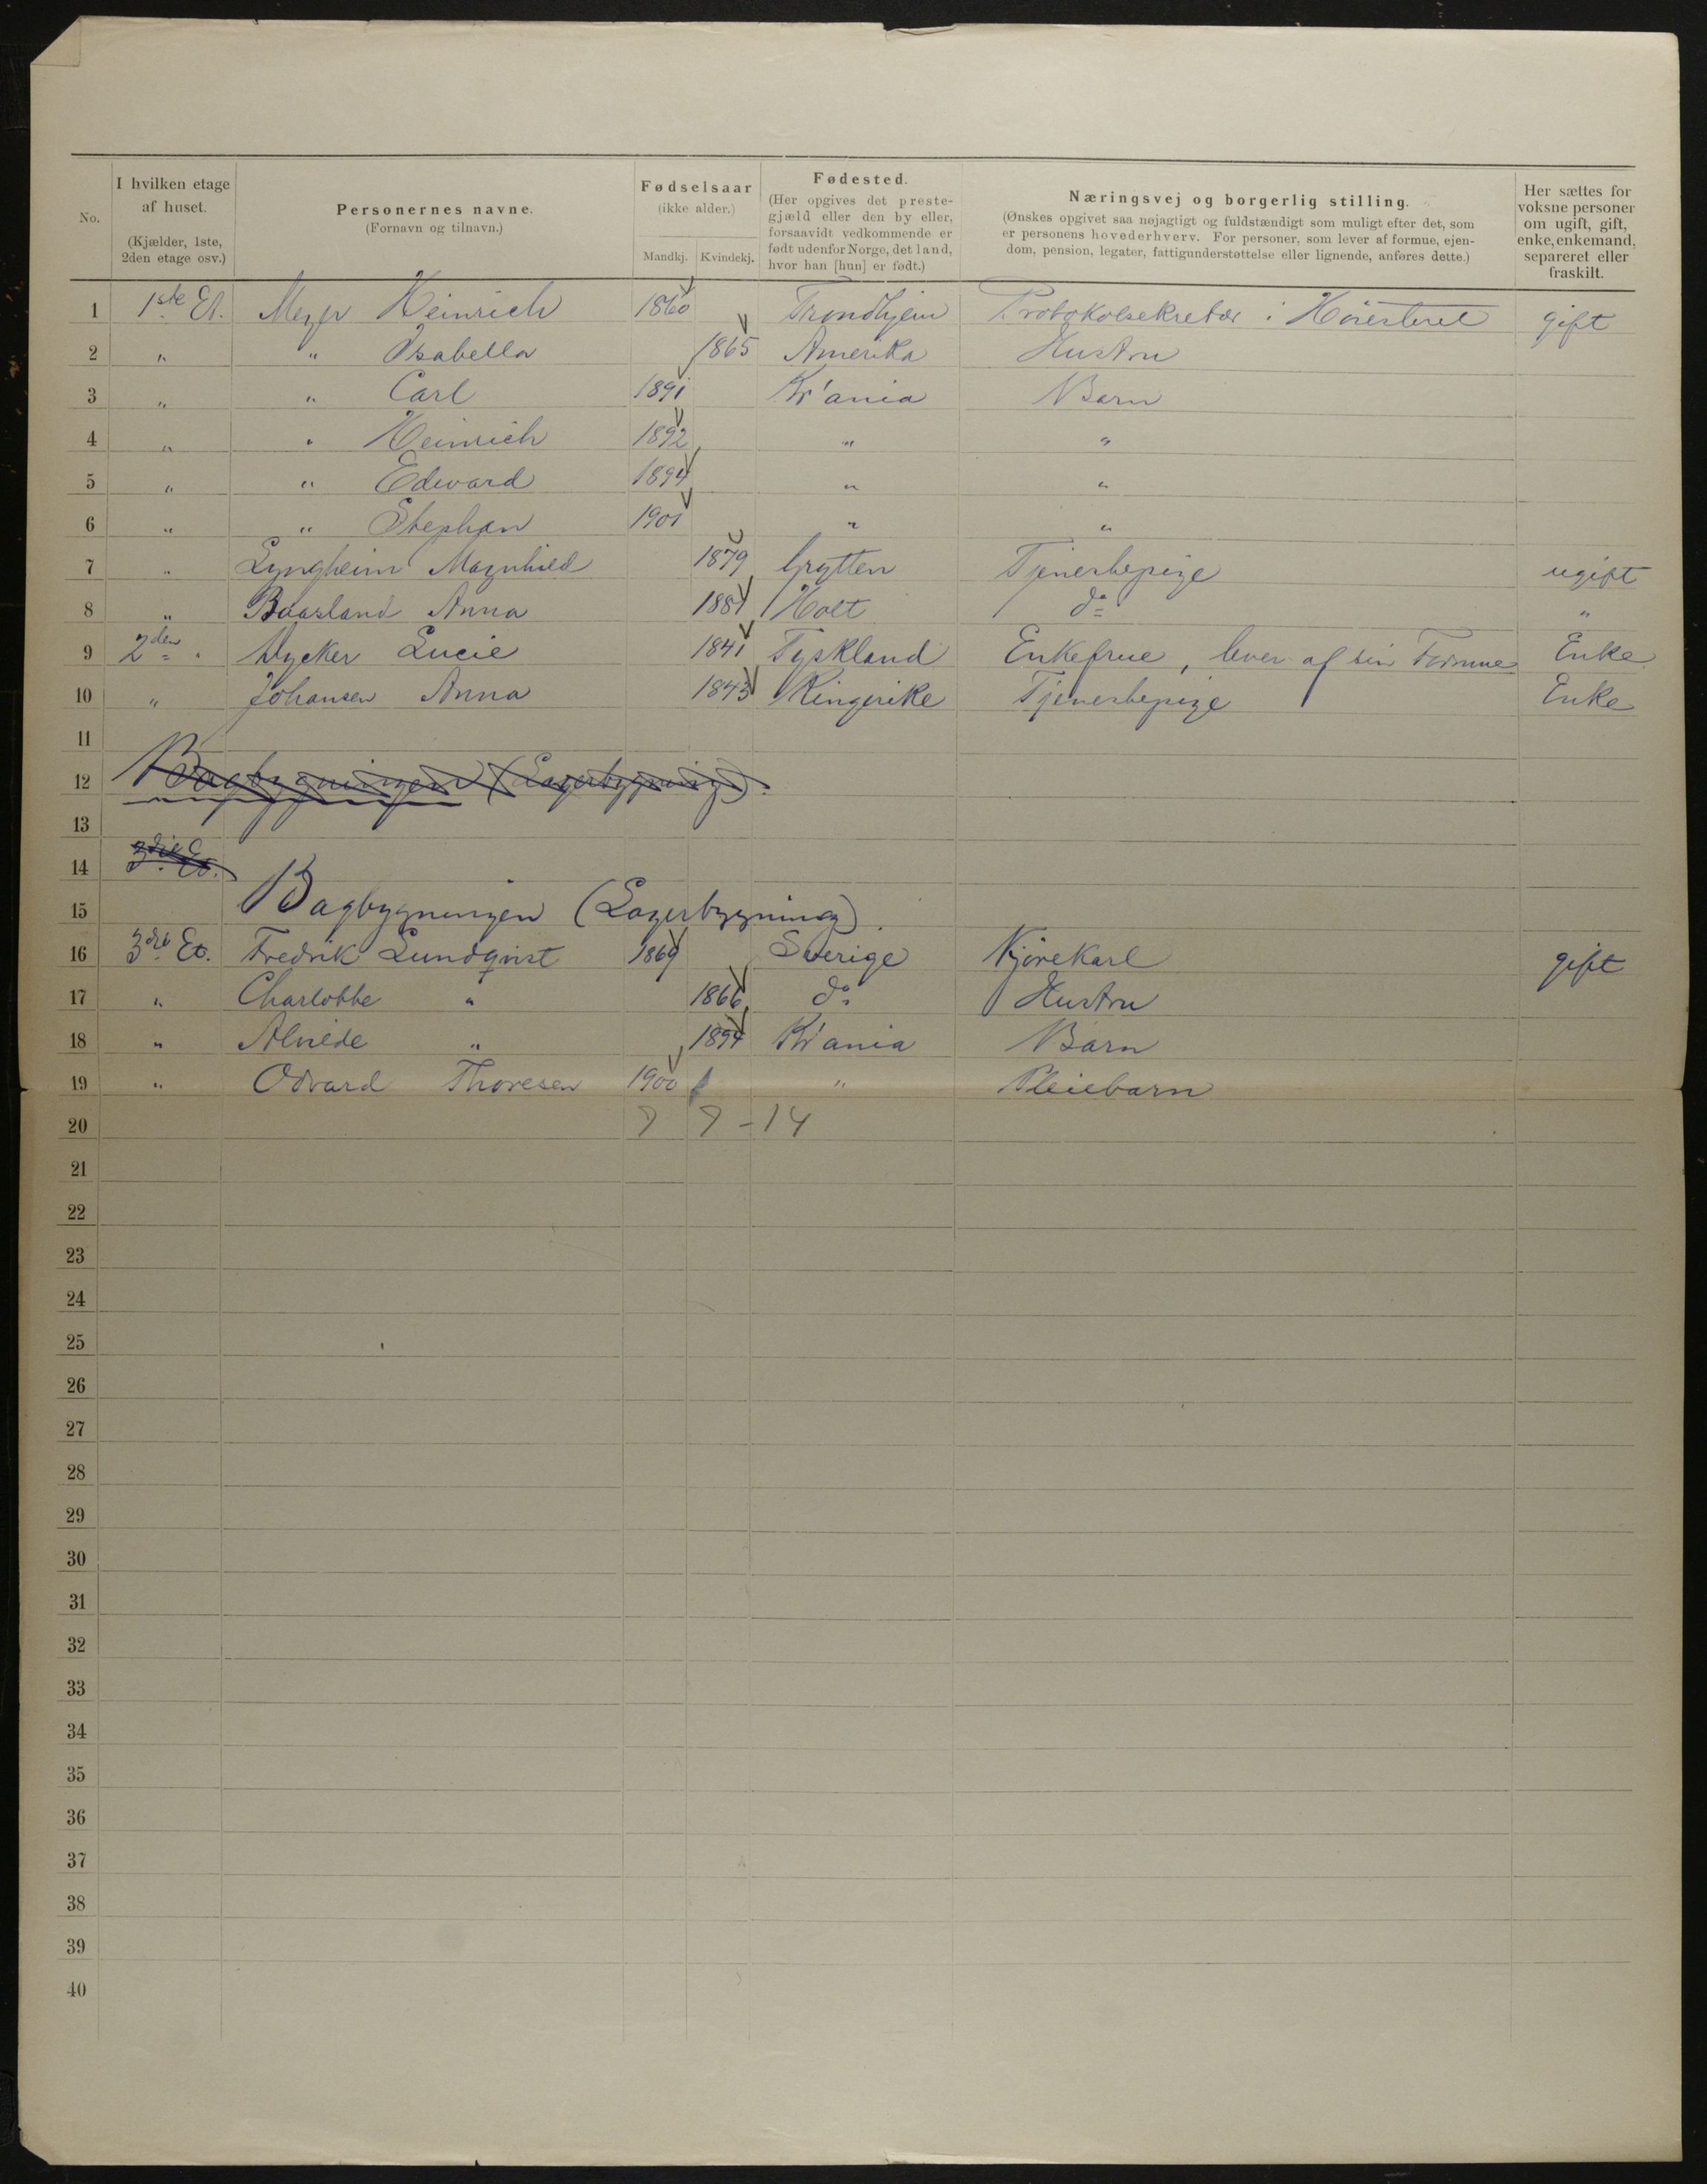 No.
I hvilken etage af huset. (Kjælder, 1ste, 2den etage osv.)
Personernes navne. (Fornavn og tilnavn.)
Fødselsaar (ikke alder.) Mandkj. Kvindekj.
Fødested. (Her opgives det prestegjæld eller den by eller, forsaavidt vedkommende er født udenfor Norge, det land, hvor han [hun] er født.)
Næringsvej og borgerlig stilling. (Ønskes opgivet saa nøjagtigt og fuldstændigt som muligt efter det, som er personens hovederhverv. For personer, som lever af formue, ejendom, pension, legater, fattigunderstøttelse eller lignende, anføres dette.)
Her sættes for voksne personer om ugift, gift, enke, enkemand, separeret eller fraskilt.
1 1ste Et. Meyer Heinrich 1860 Trondhjem Protokolsekretær i Høiesteret gift
2 " " Isabella 1865 Amerika Hustru
3 " " Carl 1891 Kr'ania Barn
4 " " Heinrich 1892 " "
5 " " Edward 1894 " "
6 " " Stephan 1901 " "
7 " Lyngheim Magnhild 1879 Grytten Tjenestepige ugift
8 " Baasland Anna 1881 Holt do "
9 2den " Lucie 1841 Tyskland Enkefrue, lever af sin Formue Enke
10 " Johansen Anna 1843 Ringerike Tjenestepige Enke
11
12 Bagbygningen (Lagerbygning).
13
14 3die Et.
15 Bagbygningen (Lagerbygning)
16 3die Et. Fredrik Lundqvist 1869 Sverige Kjørekarl gift
17 " Charlotte " 1866 do Hustru
18 " " 1894 Kr'ania Barn
19 " Odvard Thoresen 1900 " Pleiebarn
20 7 7-14
21
22
23
24
25
26
27
28
29
30
31
32
33
34
35
36
37
38
39
40